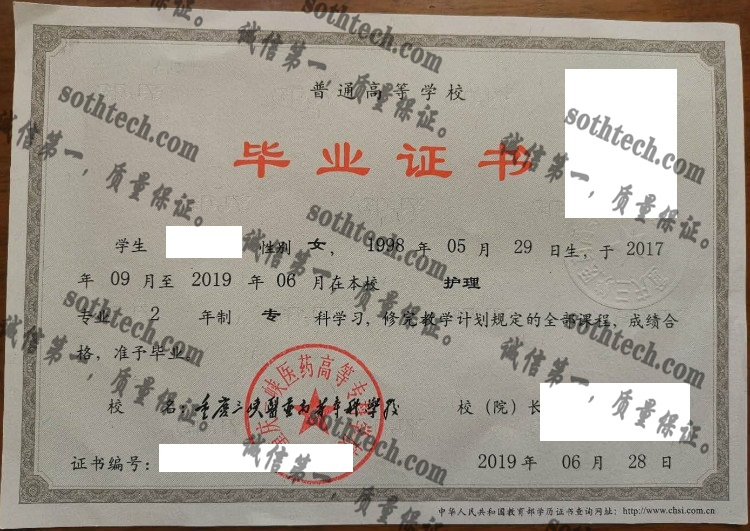 普通高等学校
毕业证书
学生 性别 女，1998 年 05 月 29 日生，于 2017
年 09 月至 2019 年 06 月在本校 护理
专业 2 年制 专 科学习，修完教学计划规定的全部课程，成绩合
格，准予毕业。
校 名：重庆三峡医药高等专科学校
校（院）长
证书编号：
2019 年 06 月 28 日
中华人民共和国教育部学历证书查询网址：http://www.chsi.com.cn
重庆三峡医药高等专科学校
sothtech.com
诚信第一，质量保证。
sothtech.com
诚信第一，质量保证。
sothtech.com
诚信第一，质量保证。
sothtech.com
诚信第一，质量保证。
sothtech.com
诚信第一，质量保证。
sothtech.com
诚信第一，质量保证。
sothtech.com
诚信第一，质量保证。
sothtech.com
诚信第一，质量保证。